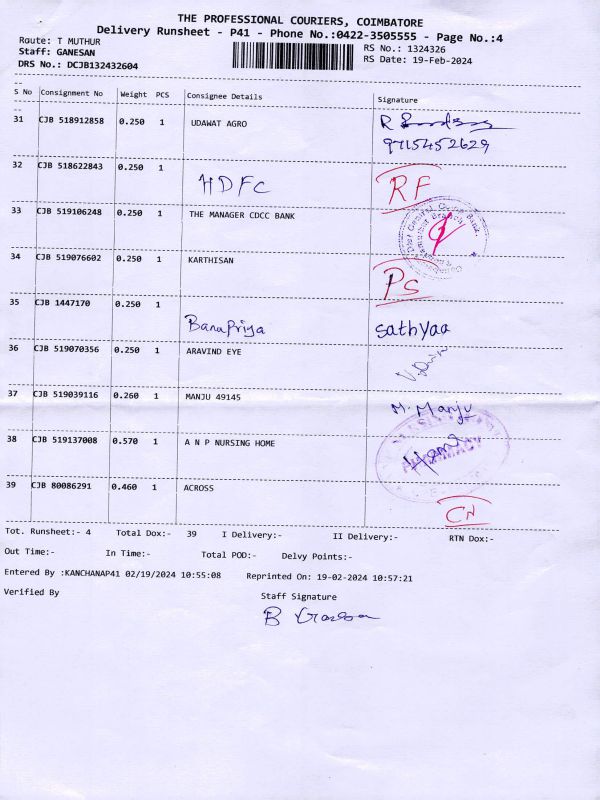 THE PROFESSIONAL COURIERS, COIMBATORE
Delivery Runsheet - P41 - Phone No.:0422-3505555 - Page No.:4
Route: T MUTHUR RS No.: 1324326
Staff: GANESAN RS Date: 19-Feb-2024
DRS No.: DCJB132432604
S No Consignment No Weight PCS Consignee Details Signature
31 CJB 518912858 0.250 1 UDAWAT AGRO
9715452629
32 CJB 518622843 0.250 1 HDFC RF
33 CJB 519106248 0.250 1 THE MANAGER CDCC BANK
34 CJB 519076602 0.250 1 KARTHISAN PS
35 CJB 1447170 0.250 1 BanuPriya Sathyaa
36 CJB 519070356 0.250 1 ARAVIND EYE
37 CJB 519039116 0.260 1 MANJU 49145 M. Manju
38 CJB 519137008 0.570 1 A N P NURSING HOME PHARMACY
39 CJB 80086291 0.460 1 ACROSS CN
Tot. Runsheet:- 4 Total Dox:- 39 I Delivery:- II Delivery:- RTN Dox:-
Out Time:- In Time:- Total POD:- Delvy Points:-
Entered By :KANCHANAP41 02/19/2024 10:55:08 Reprinted On: 19-02-2024 10:57:21
Verified By Staff Signature